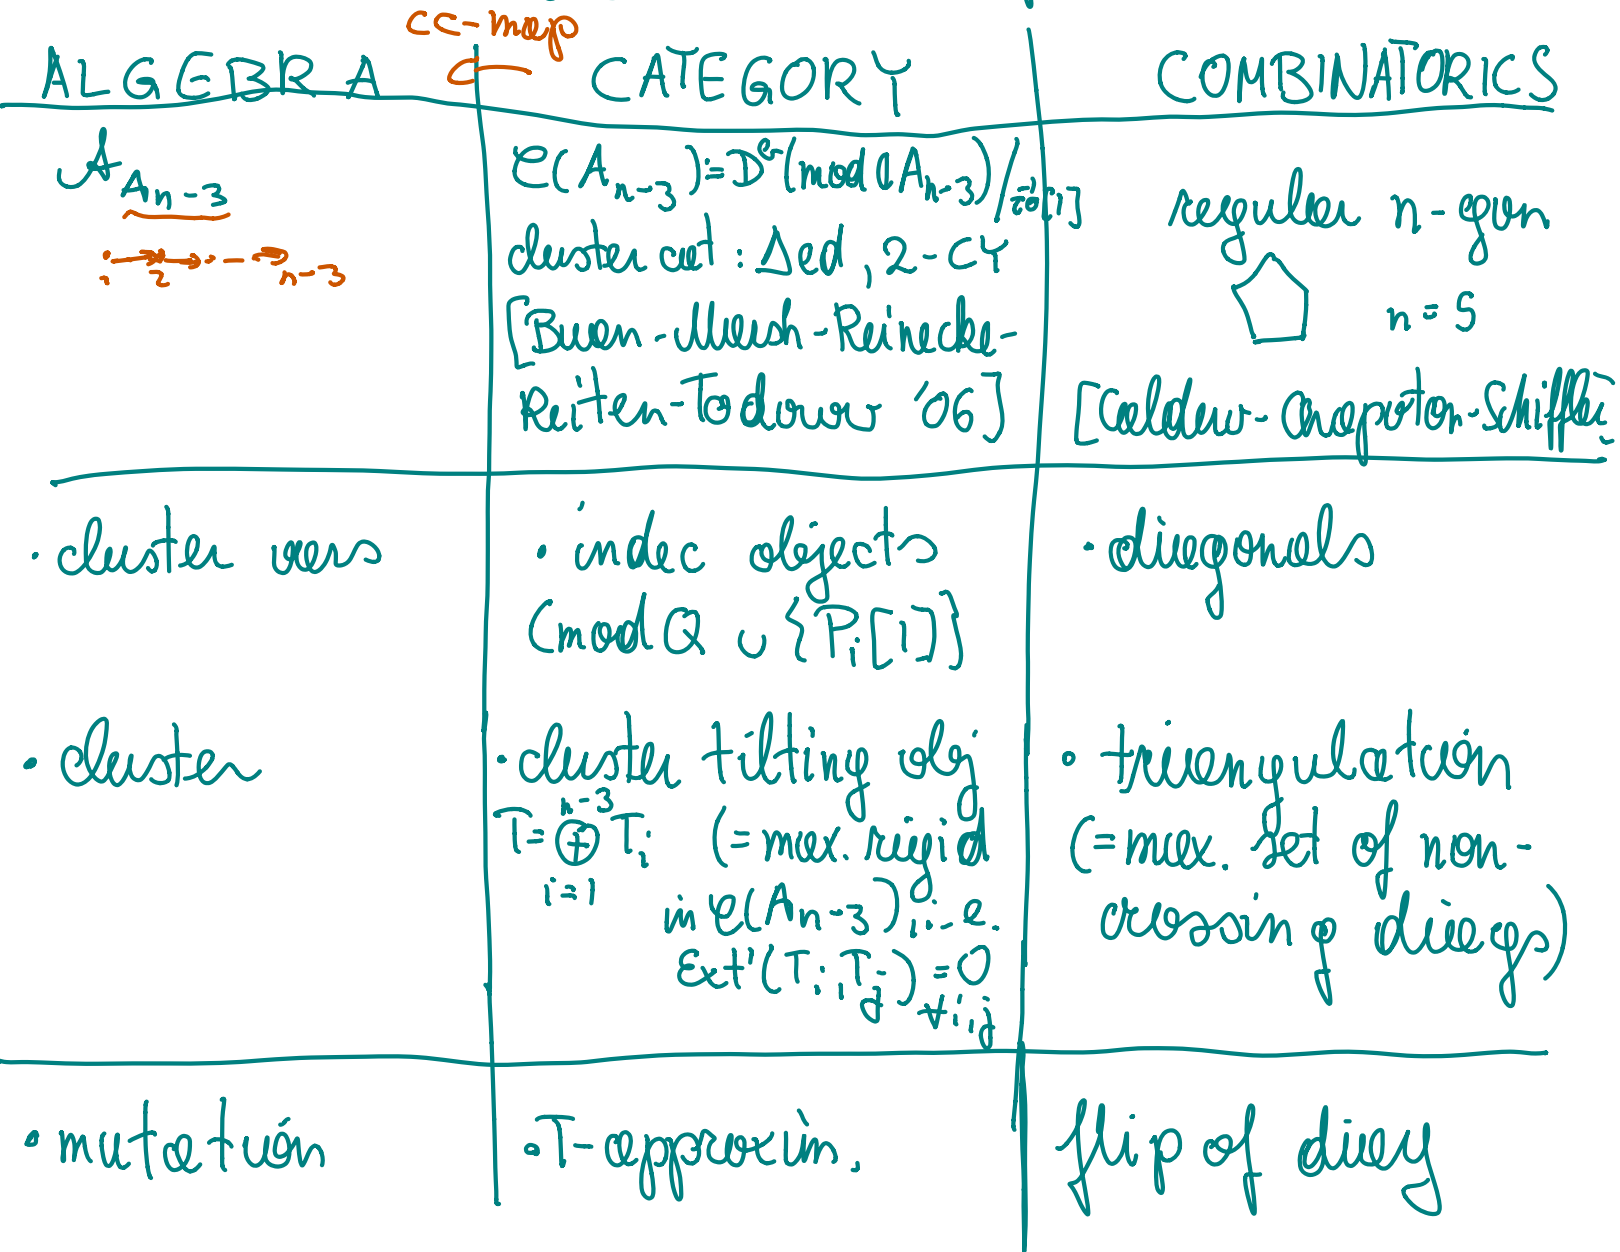 cc-map
ALGEBRA CATEGORY COMBINATORICS
𝒜_{A_{n-3}}
1 2 n-3
𝒞(A_{n-3}):=D^b(mod ℂA_{n-3})/τ^{-1}∘[1]
cluster cat: Δed, 2-CY
[Buan-Marsh-Reinecke-
Reiten-Todorov '06]
regular n-gon
n=5
[Caldero-Chapoton-Schiffler
· cluster vars
· indec objects
(mod Q ∪ {P_i[1]}
· diagonals
· cluster
· cluster tilting obj
T=⊕_{i=1}^{n-3} T_i (=max. rigid
in 𝒞(A_{n-3}), i.e.
Ext^1(T_i, T_j)=0
∀i,j
· triangulation
(=max. set of non-
crossing diags)
· mutation
· T-approxim.
flip of diag